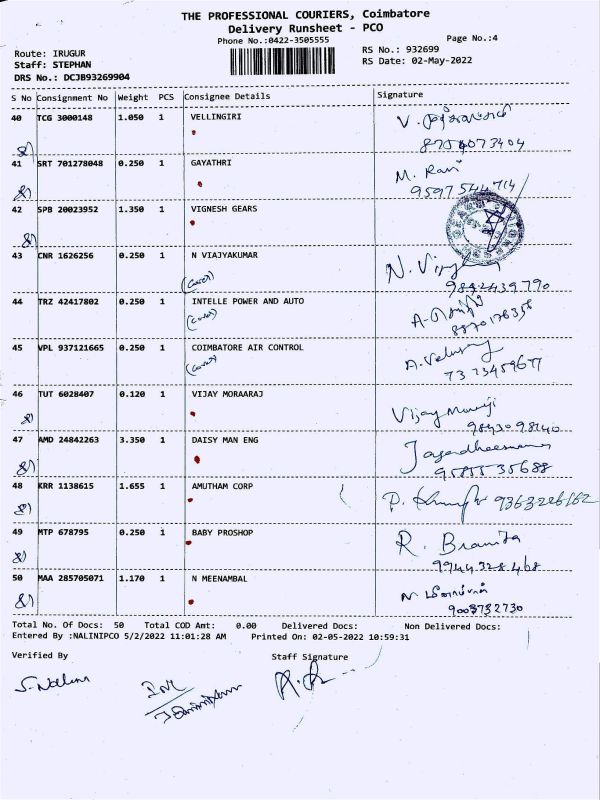 THE PROFESSIONAL COURIERS, Coimbatore
Delivery Runsheet - PCO
Phone No.:0422-3505555
Page No.:4
Route: IRUGUR
RS No.: 932699
Staff: STEPHAN
RS Date: 02-May-2022
DRS No.: DCJB93269904
S No Consignment No Weight PCS Consignee Details Signature
40 TCG 3000148 1.050 1 VELLINGIRI
8754073404
41 SRT 701278048 0.250 1 GAYATHRI M. Rani
9597544714
42 SPB 20023952 1.350 1 VIGNESH GEARS
43 CNR 1626256 0.250 1 N VIAJYKUMAR N. Vijay
(Cover) 9842439790
44 TRZ 42417802 0.250 1 INTELLE POWER AND AUTO
(Cover) 8870176356
45 VPL 937121665 0.250 1 COIMBATORE AIR CONTROL
(Cover) 7373459677
46 TUT 6028407 0.120 1 VIJAY MORAARAJ
9843098140
47 AMD 24842263 3.350 1 DAISY MAN ENG
9585535688
48 KRR 1138615 1.655 1 AMUTHAM CORP 9363226162
49 MTP 678795 0.250 1 BABY PROSHOP R.
9944328468
50 MAA 285705071 1.170 1 N MEENAMBAL
9003732730
Total No. Of Docs: 50 Total COD Amt: 0.00 Delivered Docs: Non Delivered Docs:
Entered By :NALINIPCO 5/2/2022 11:01:28 AM Printed On: 02-05-2022 10:59:31
Verified By Staff Signature